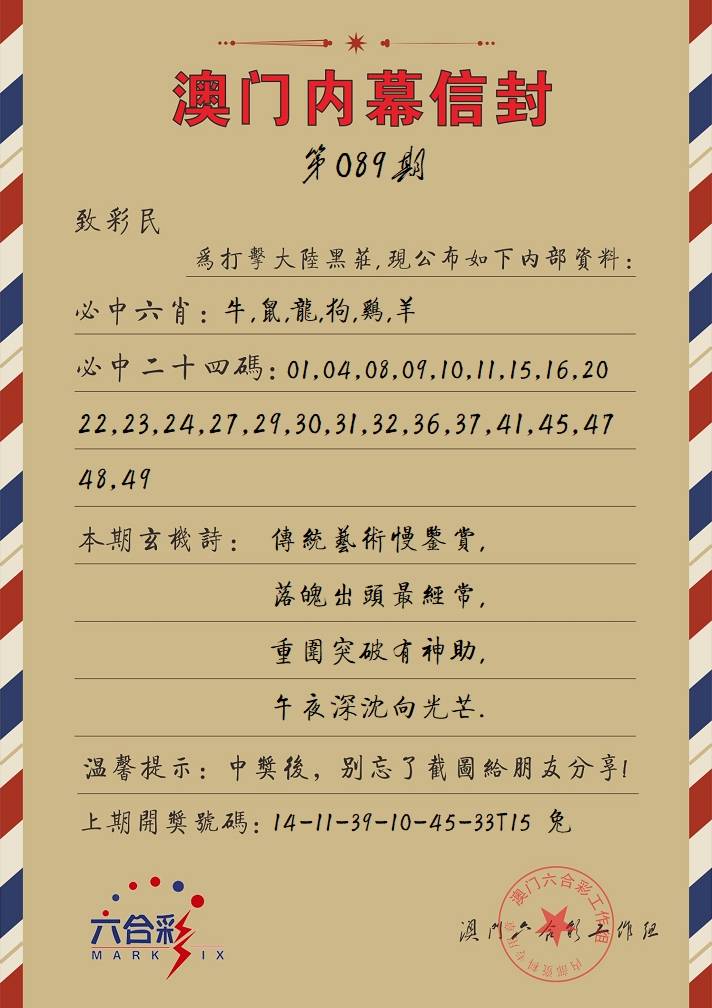 澳门内幕信封
第089期
致彩民
爲打擊大陸黑莊,現公布如下内部資料:
必中六肖: 牛,鼠,龍,狗,鷄,羊
必中二十四碼: 01,04,08,09,10,11,15,16,20
22,23,24,27,29,30,31,32,36,37,41,45,47
48,49
本期玄機詩: 傳統藝術慢鑒賞,
落魄出頭最經常,
重圍突破有神助,
午夜深沈向光芒.
温馨提示: 中獎後, 别忘了截圖給朋友分享!
上期開獎號碼: 14-11-39-10-45-33T15 兔
六合彩
MARK SIX
澳门六合彩工作组
内部资料专用章
澳门六合彩工作组